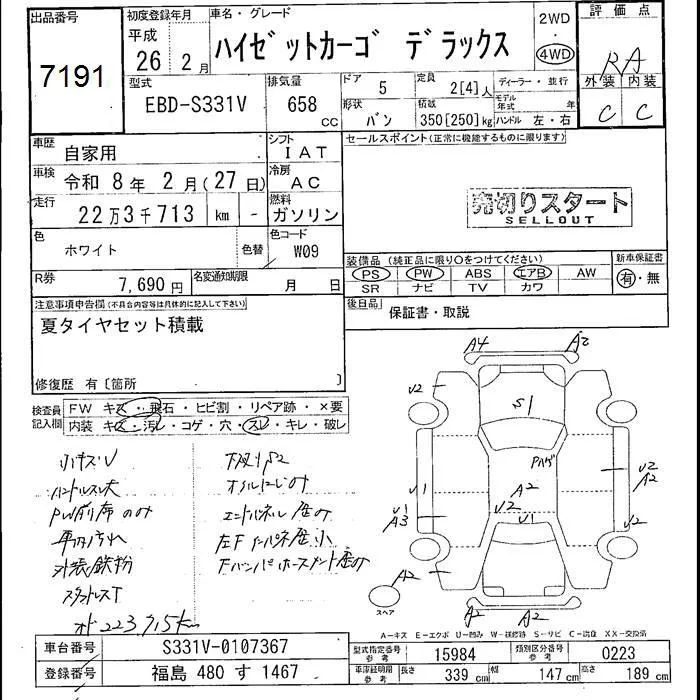 出品番号
7191
初度登録年月
平成
26 2月
車名・グレード
ハイゼットカーゴ デラックス
2WD
・
4WD
評価点
RA
外装 内装
C C
型式
EBD-S331V
排気量
658 CC
ドア 5
定員 2[4]人
形状 バン
積数 350[250]kg
ディーラー・並行
モデル年式 年
ハンドル 左・右
車歴 自家用
シフト IAT
車検 令和 8年 2月(27日)
冷房 AC
走行 22万3千713 km -
燃料 ガソリン
色 ホワイト 色替
色コード W09
R券 7,690円
名変通知期限 月 日
セールスポイント(正常に機能するものに限ります)
売切りスタート
SELLOUT
装備品(純正品に限り○をつけてください)
新車保証書
PS PW ABS エアB AW
有・無
SR ナビ TV カワ
後日品 保証書・取説
注意事項申告欄(不具合内容等は具体的に記入して下さい)
夏タイヤセット積載
修復歴 有〔箇所 〕
検査員記入欄
FW キズ・飛石・ヒビ割・リペア跡・×要
内装 キズ・汚レ・コゲ・穴・スレ・キレ・破レ
小キズU
ハンドルスレ大
PW前席のみ
車内汚れ
外装鉄粉
スタットレスT
オド223,715km
下廻りS2
オイルにじみ
エンドパネル歪み
左Fインパネ歪小
Fバンパホースメント歪み
A4 A2
V2
S1
Pハゲ
V2
A2
V1
A2
V1
A3
V2
V1
V2
A2
スペア
A2 A2
A-キズ E-エクボ U-凹み W-補修跡 S-サビ C-腐食 XX-交換済
車台番号 S331V-0107367
登録番号 福島 480 す 1467
型式指定番号 参考 15984
類別区分番号 参考 0223
車庫証明用 参考
長さ 339 cm
幅 147 cm
高さ 189 cm